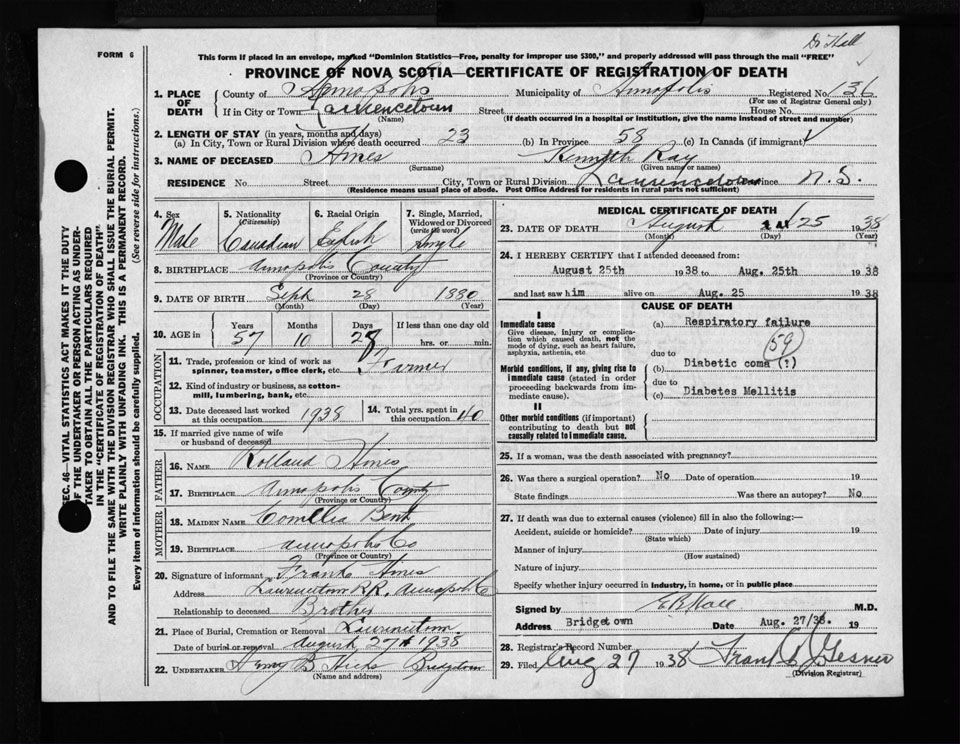 Dr Hall
FORM 6
This form if placed in an envelope, marked "Dominion Statistics—Free, penalty for improper use $300," and properly addressed will pass through the mail "FREE"
PROVINCE OF NOVA SCOTIA—CERTIFICATE OF REGISTRATION OF DEATH
1. PLACE OF DEATH County of Annapolis Municipality of Annapolis Registered No. 136
(For use of Registrar General only)
If in City or Town Lawrencetown Street House No.
(Name) (If death occurred in a hospital or institution, give the name instead of street and number)
2. LENGTH OF STAY (in years, months and days)
(a) In City, Town or Rural Division where death occurred 23 (b) In Province 58 (c) In Canada (if immigrant)
3. NAME OF DECEASED Kenneth Ray
(Surname) (Given name or names)
RESIDENCE No. Street City, Town or Rural Division Lawrencetown Province N.S.
(Residence means usual place of abode. Post Office Address for residents in rural parts not sufficient)
4. Sex 5. Nationality (Citizenship) 6. Racial Origin 7. Single, Married, Widowed or Divorced (write the word)
Male Canadian English Single
8. BIRTHPLACE Annapolis County
(Province or Country)
9. DATE OF BIRTH Sept 28 1880
(Month) (Day) (Year)
10. AGE in Years Months Days If less than one day old
57 10 28 hrs. or min.
OCCUPATION
11. Trade, profession or kind of work as spinner, teamster, office clerk, etc. Farmer
12. Kind of industry or business, as cotton-mill, lumbering, bank, etc.
13. Date deceased last worked at this occupation 1938 14. Total yrs. spent in this occupation 40
15. If married give name of wife or husband of deceased
FATHER
16. NAME Rolland
17. BIRTHPLACE Annapolis County
(Province or Country)
MOTHER
18. MAIDEN NAME Bent
19. BIRTHPLACE Annapolis Co
(Province or Country)
20. Signature of informant Frank
Address Lawrencetown R.R. Annapolis Co
Relationship to deceased Brother
21. Place of Burial, Cremation or Removal Lawrencetown
Date of burial or removal August 27th 1938
22. UNDERTAKER B Hicks Bridgetown
(Name and address)
MEDICAL CERTIFICATE OF DEATH
23. DATE OF DEATH August 25 1938
(Month) (Day) (Year)
24. I HEREBY CERTIFY that I attended deceased from:
August 25th 1938 to Aug. 25th 1938
and last saw him alive on Aug. 25 1938
CAUSE OF DEATH
I
Immediate cause (a) Respiratory failure
Give disease, injury or complication which caused death, not the mode of dying, such as heart failure, asphyxia, asthenia, etc
59
due to
Morbid conditions, if any, giving rise to immediate cause (stated in order proceeding backwards from immediate cause). (b) Diabetic coma (?)
due to
(c) Diabetes Mellitis
II
Other morbid conditions (if important) contributing to death but not causally related to immediate cause.
25. If a woman, was the death associated with pregnancy?
26. Was there a surgical operation? No Date of operation 19
State findings Was there an autopsy? No
27. If death was due to external causes (violence) fill in also the following:—
Accident, suicide or homicide? Date of injury 19
(State which)
Manner of injury
(How sustained)
Nature of injury
Specify whether injury occurred in industry, in home, or in public place
Signed by M.D.
Address Bridgetown Date Aug. 27/38. 19
28. Registrar's Record Number
29. Filed Aug 27 1938 Frank Gesner
(Division Registrar)
SEC. 46—VITAL STATISTICS ACT MAKES IT THE DUTY
OF THE UNDERTAKER OR PERSON ACTING AS UNDER-
TAKER TO OBTAIN ALL THE PARTICULARS REQUIRED
IN THE "CERTIFICATE OF REGISTRATION OF DEATH"
AND TO FILE THE SAME WITH THE DIVISION REGISTRAR WHO SHALL ISSUE THE BURIAL PERMIT.
WRITE PLAINLY WITH UNFADING INK. THIS IS A PERMANENT RECORD.
Every item of information should be carefully supplied. (See reverse side for instructions.)